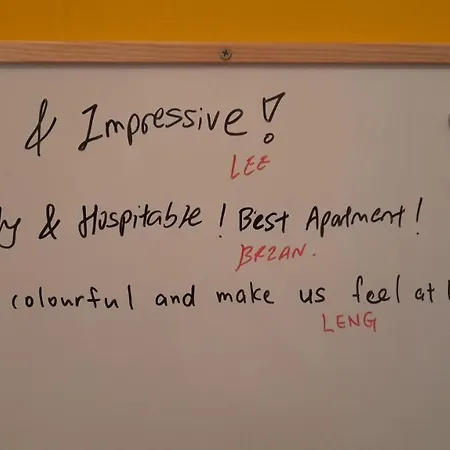 & Impressive!
LEE
& Hospitable! Best Apatment!
BRZAN.
colourful and make us feel at
LENG